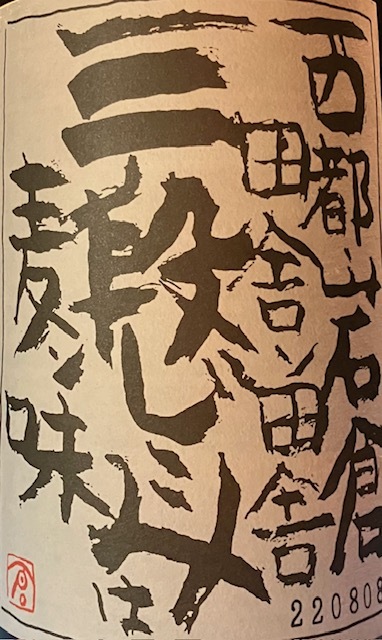 西都岩倉
田舎ノ田舎
三段じこみは
麦ノ味
220808